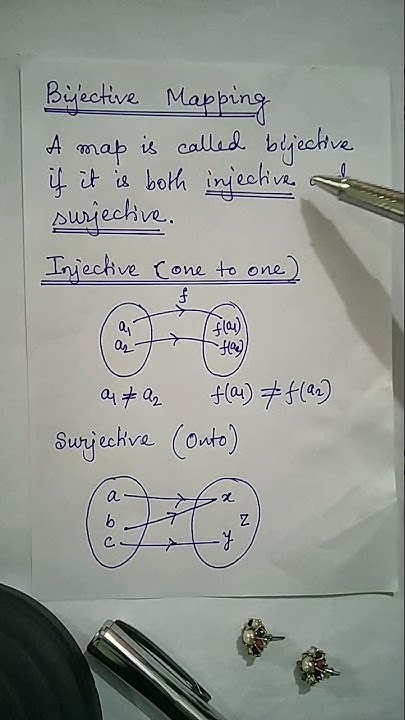 Bijective Mapping
A map is called bijective
if it is both injective
surjective.
Injective (one to one)
f
a1 f(a1)
a2 f(a2)
a1 ≠ a2 f(a1) ≠ f(a2)
Surjective (Onto)
a x
b z
c y